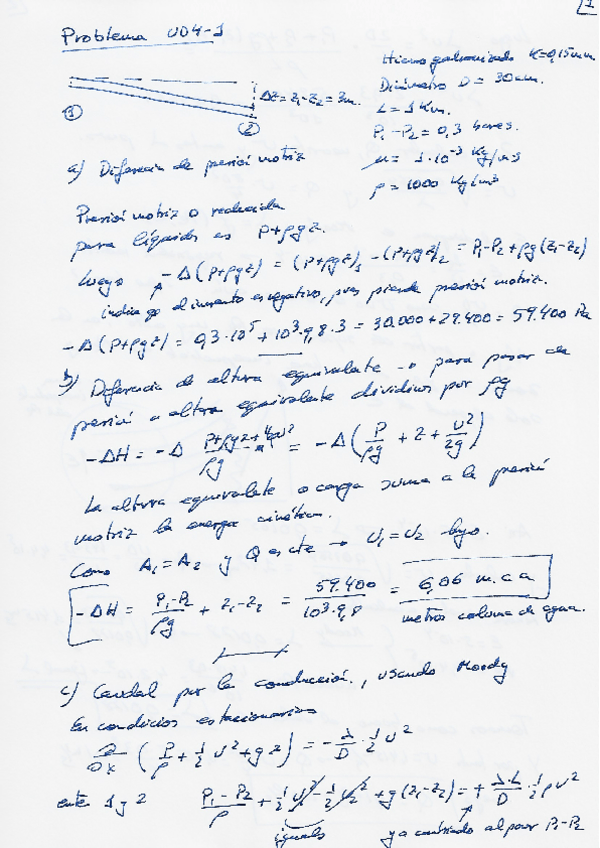 1
Problema U04-1
Hierro galvanizado K=0,15mm
Diámetro D = 30cm.
L = 1 Km.
P₁-P₂ = 0,3 bares.
μ = 1·10⁻³ Kg/m·s
ρ = 1000 Kg/m³
Δz = z₁-z₂ = 3m.
①
②
a) Diferencia de presión motriz
Presión motriz o reducida
para líquidos es P+ρgz.
luego -Δ(P+ρgz) = (P+ρgz)₁ - (P+ρgz)₂ = P₁-P₂+ρg(z₁-z₂)
indica que el incremento es negativo, pues pierde presión motriz.
-Δ(P+ρgz) = 0,3·10⁵ + 10³·9,8·3 = 30.000+29.400 = 59.400 Pa
b) Diferencia de altura equivalente → para pasar de
presión a altura equivalente dividimos por ρg
-ΔH = -Δ (P+ρgz+½ρv²)/ρg = -Δ(P/ρg + z + v²/2g)
La altura equivalente o carga suma a la presión
motriz la energía cinética.
Como A₁=A₂ y Q es cte → v₁=v₂ luego.
-ΔH = (P₁-P₂)/ρg + z₁-z₂ = 59.400/10³·9,8 = 6,06 m.c.a
metros columna de agua.
c) Caudal por la conducción, usando Moody
En condiciones estacionarias
∂/∂x (P/ρ + ½v² + gz) = -λ/D · ½ v²
entre 1 y 2 (P₁-P₂)/ρ + ½v₁² - ½v₂² + g(z₁-z₂) = + λ·L/D · ½ρv²
iguales
ya cambiado al poner P₁-P₂